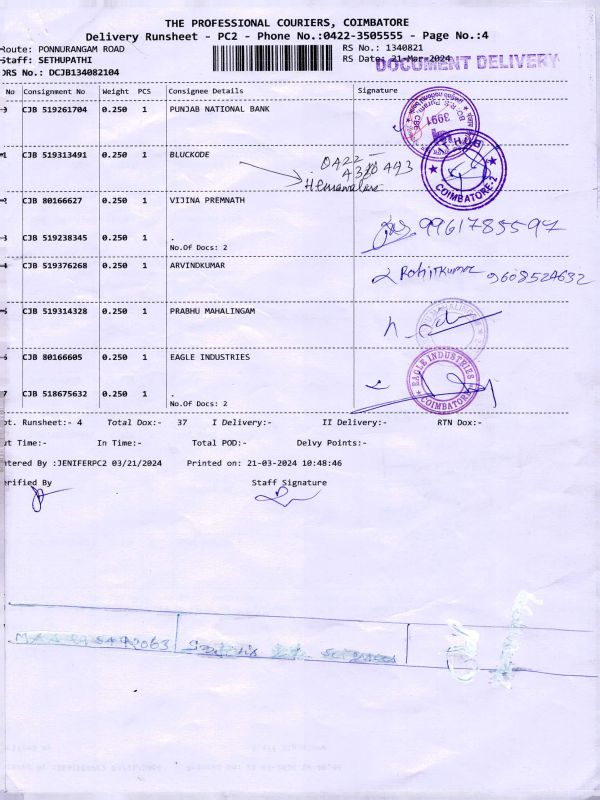 THE PROFESSIONAL COURIERS, COIMBATORE
Delivery Runsheet - PC2 - Phone No.:0422-3505555 - Page No.:4
Route: PONNURANGAM ROAD RS No.: 1340821
Staff: SETHUPATHI RS Date: 21-Mar-2024
DOCUMENT DELIVERY
DRS No.: DCJB134082104
No Consignment No Weight PCS Consignee Details Signature
CJB 519261704 0.250 1 PUNJAB NATIONAL BANK
3991
CJB 519313491 0.250 1 BLUCKODE
0422
COIMBATORE-2
CJB 80166627 0.250 1 VIJINA PREMNATH
9961785597
CJB 519238345 0.250 1 .
No.Of Docs: 2
CJB 519376268 0.250 1 ARVINDKUMAR
Rohitkumar 9608524632
CJB 519314328 0.250 1 PRABHU MAHALINGAM
CJB 80166605 0.250 1 EAGLE INDUSTRIES
EAGLE INDUSTRIES
COIMBATORE
7 CJB 518675632 0.250 1 .
No.Of Docs: 2
ot. Runsheet:- 4 Total Dox:- 37 I Delivery:- II Delivery:- RTN Dox:-
ut Time:- In Time:- Total POD:- Delvy Points:-
ntered By :JENIFERPC2 03/21/2024 Printed on: 21-03-2024 10:48:46
erified By Staff Signature